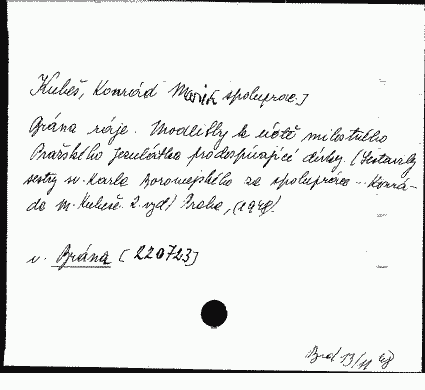 Kubeš, Konrád Maria [spoluprac.]
Brána ráje. Modlitby k úctě milostného
Pražského Jezulátka pro dospívající dívky. (Sestavily
sestry sv. Karla Boromejského za spolupráce Konrá-
da M. Kubeše. 2. vyd.) Praha, (1948).
v. Brána [220723]
Brd 13/11